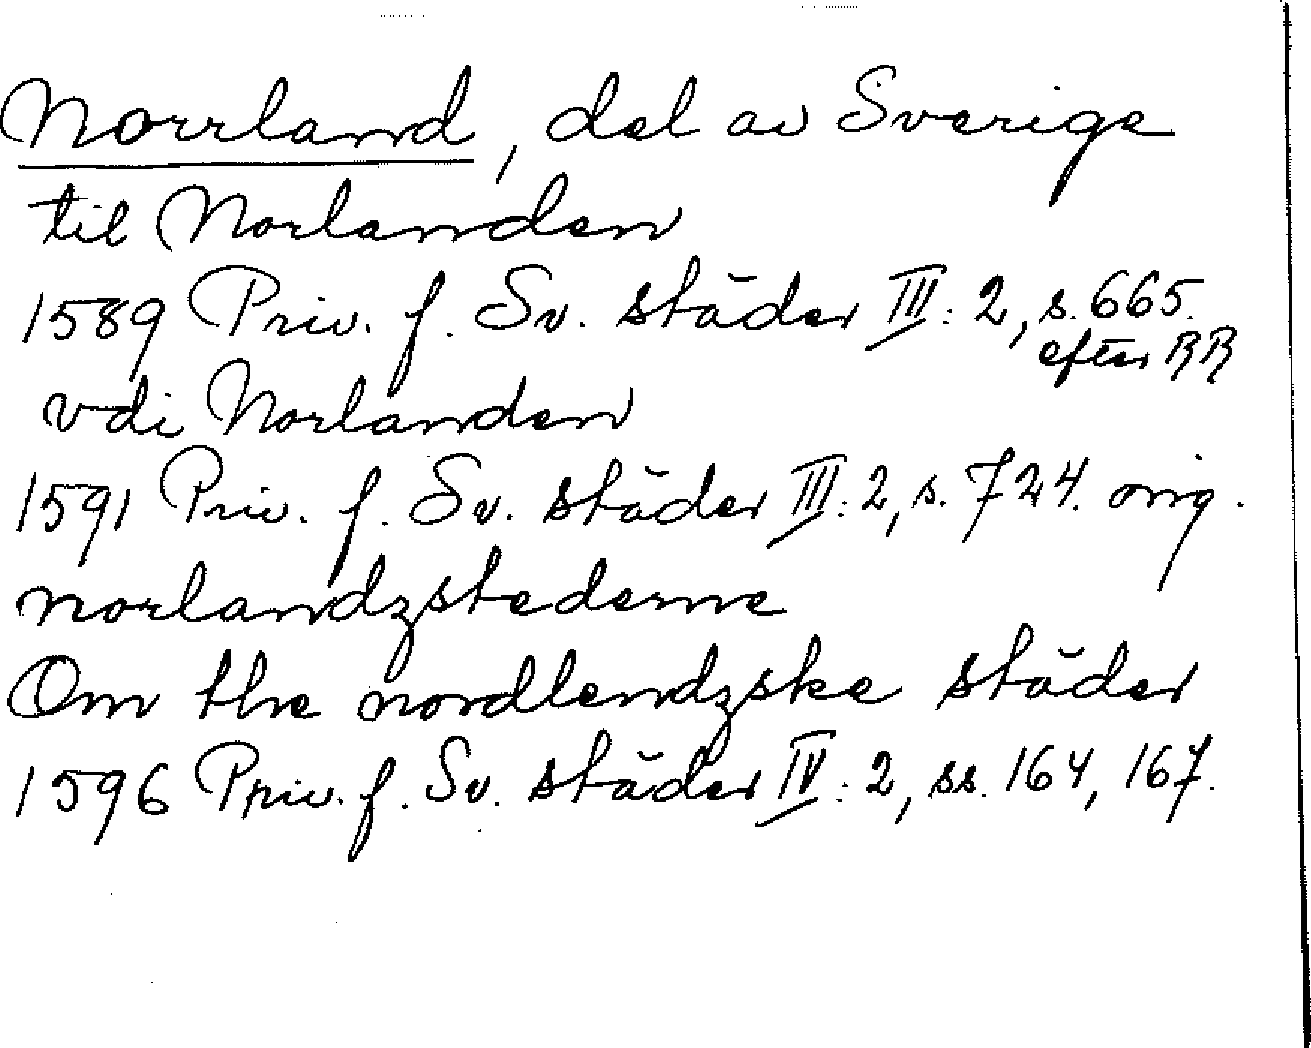 Norrland, del av Sverige
til Norlanden
1589 Priv. f. Sv. städer III: 2, s. 665.
efter RR
vdi Norlanden
1591 Priv. f. Sv. städer III: 2, s. 724. orig.
norlandzstederne
Om the nordlendzske städer
1596 Priv. f. Sv. städer IV: 2, ss. 164, 167.